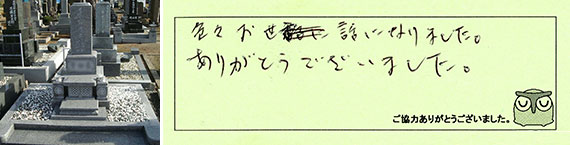 色々お世話になりました。
ありがとうございました。
ご協力ありがとうございました。